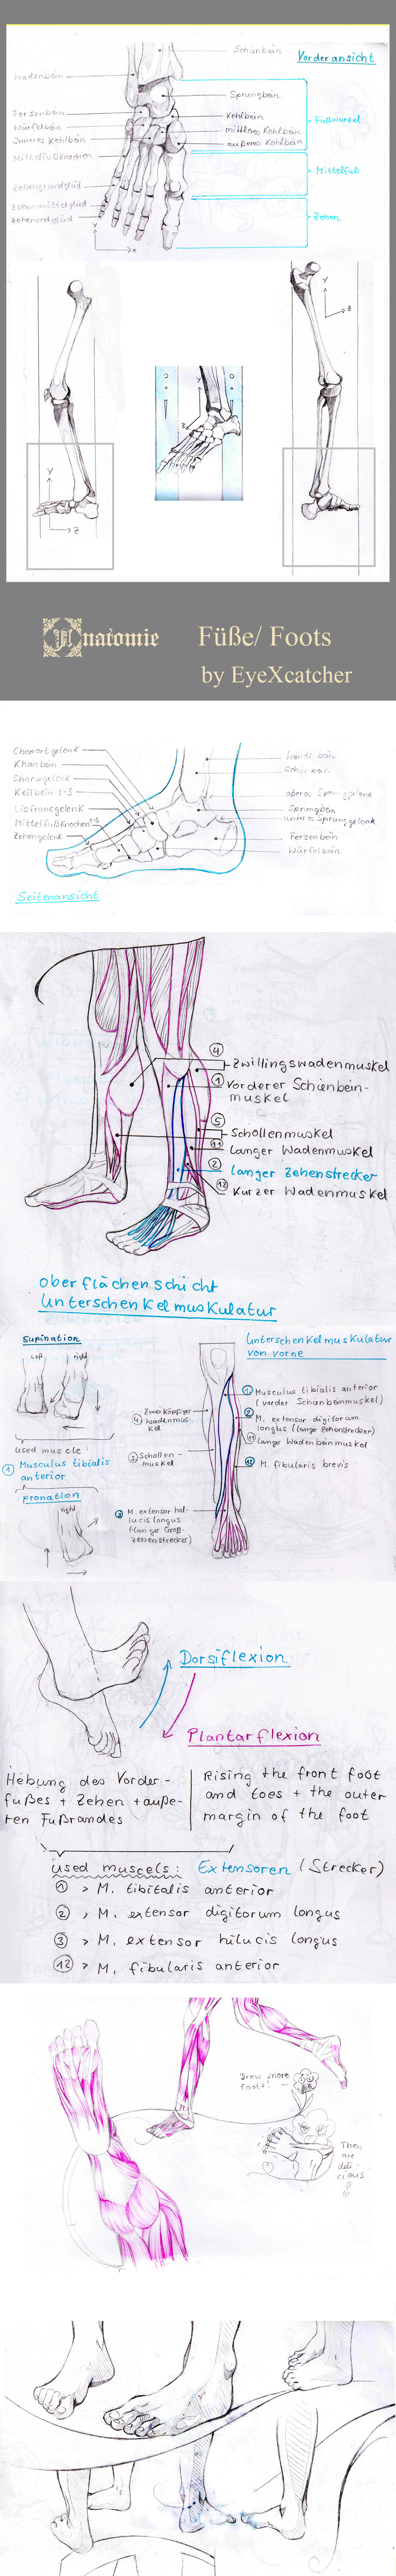 Vorderansicht
Schienbein
Wadenbein
Sprungbein
Fersenbein
Würfelbein
Inneres Kehlbein
Mittelfußknochen
Kehlbein
mittleres Kehlbein
äußeres Kehlbein
Fußwurzel
Mittelfuß
Zehengrundglüd
Zehenmittelglüd
Zehenendglüd
Zehen
Y
X
Y
Z
Y
Z
Y
Z
Anatomie
Füße/ Foots
by EyeXcatcher
Chopart gelenk
Khanbein
Sharpgelenk
Keilbein 1-3
Lisfrancgelenk
Mittelfußknochen 1-5
Zehengelenk
Seitenansicht
oberes Sprunggelenk
Sprungbein
unteres Sprunggelenk
Fersenbein
Würfelbein
④ Zwillingswadenmuskel
① Vorderer Schienbein-
muskel
⑤ Schollenmuskel
⑪ langer Wadenmuskel
② langer Zehenstrecker
⑫ Kurzer Wadenmuskel
Oberflächenschicht
Unterschenkelmuskulatur
Supination
Left right
used muscle:
① Musculus tibialis
anterior
pronation
right
Unterschenkelmuskulatur
von vorne
④ Zweiköpfiger
Wadenmus-
kel
⑤ Schollen-
muskel
③ M. extensor hal-
lucis longus
(langer Groß-
zehenstrecker)
① Musculus tibialis anterior
(vorder Schienbeinmuskel)
② M. extensor digitorum
longus (langer Zehenstrecker)
⑪ langer Wadenbeinmuskel
⑫ M. fibularis brevis
Dorsiflexion
Plantarflexion
Hebung des Vorder-
fußes + Zehen + äuße-
ren Fußrandes
Rising the front foot
and toes + the outer
margin of the foot
used muscels: Extensoren (Strecker)
① > M. tibitalis anterior
② > M. extensor digitorum longus
③ > M. extensor hilucis longus
⑫ > M. fibularis anterior
Draw more
foots!
They
are
deli-
cious